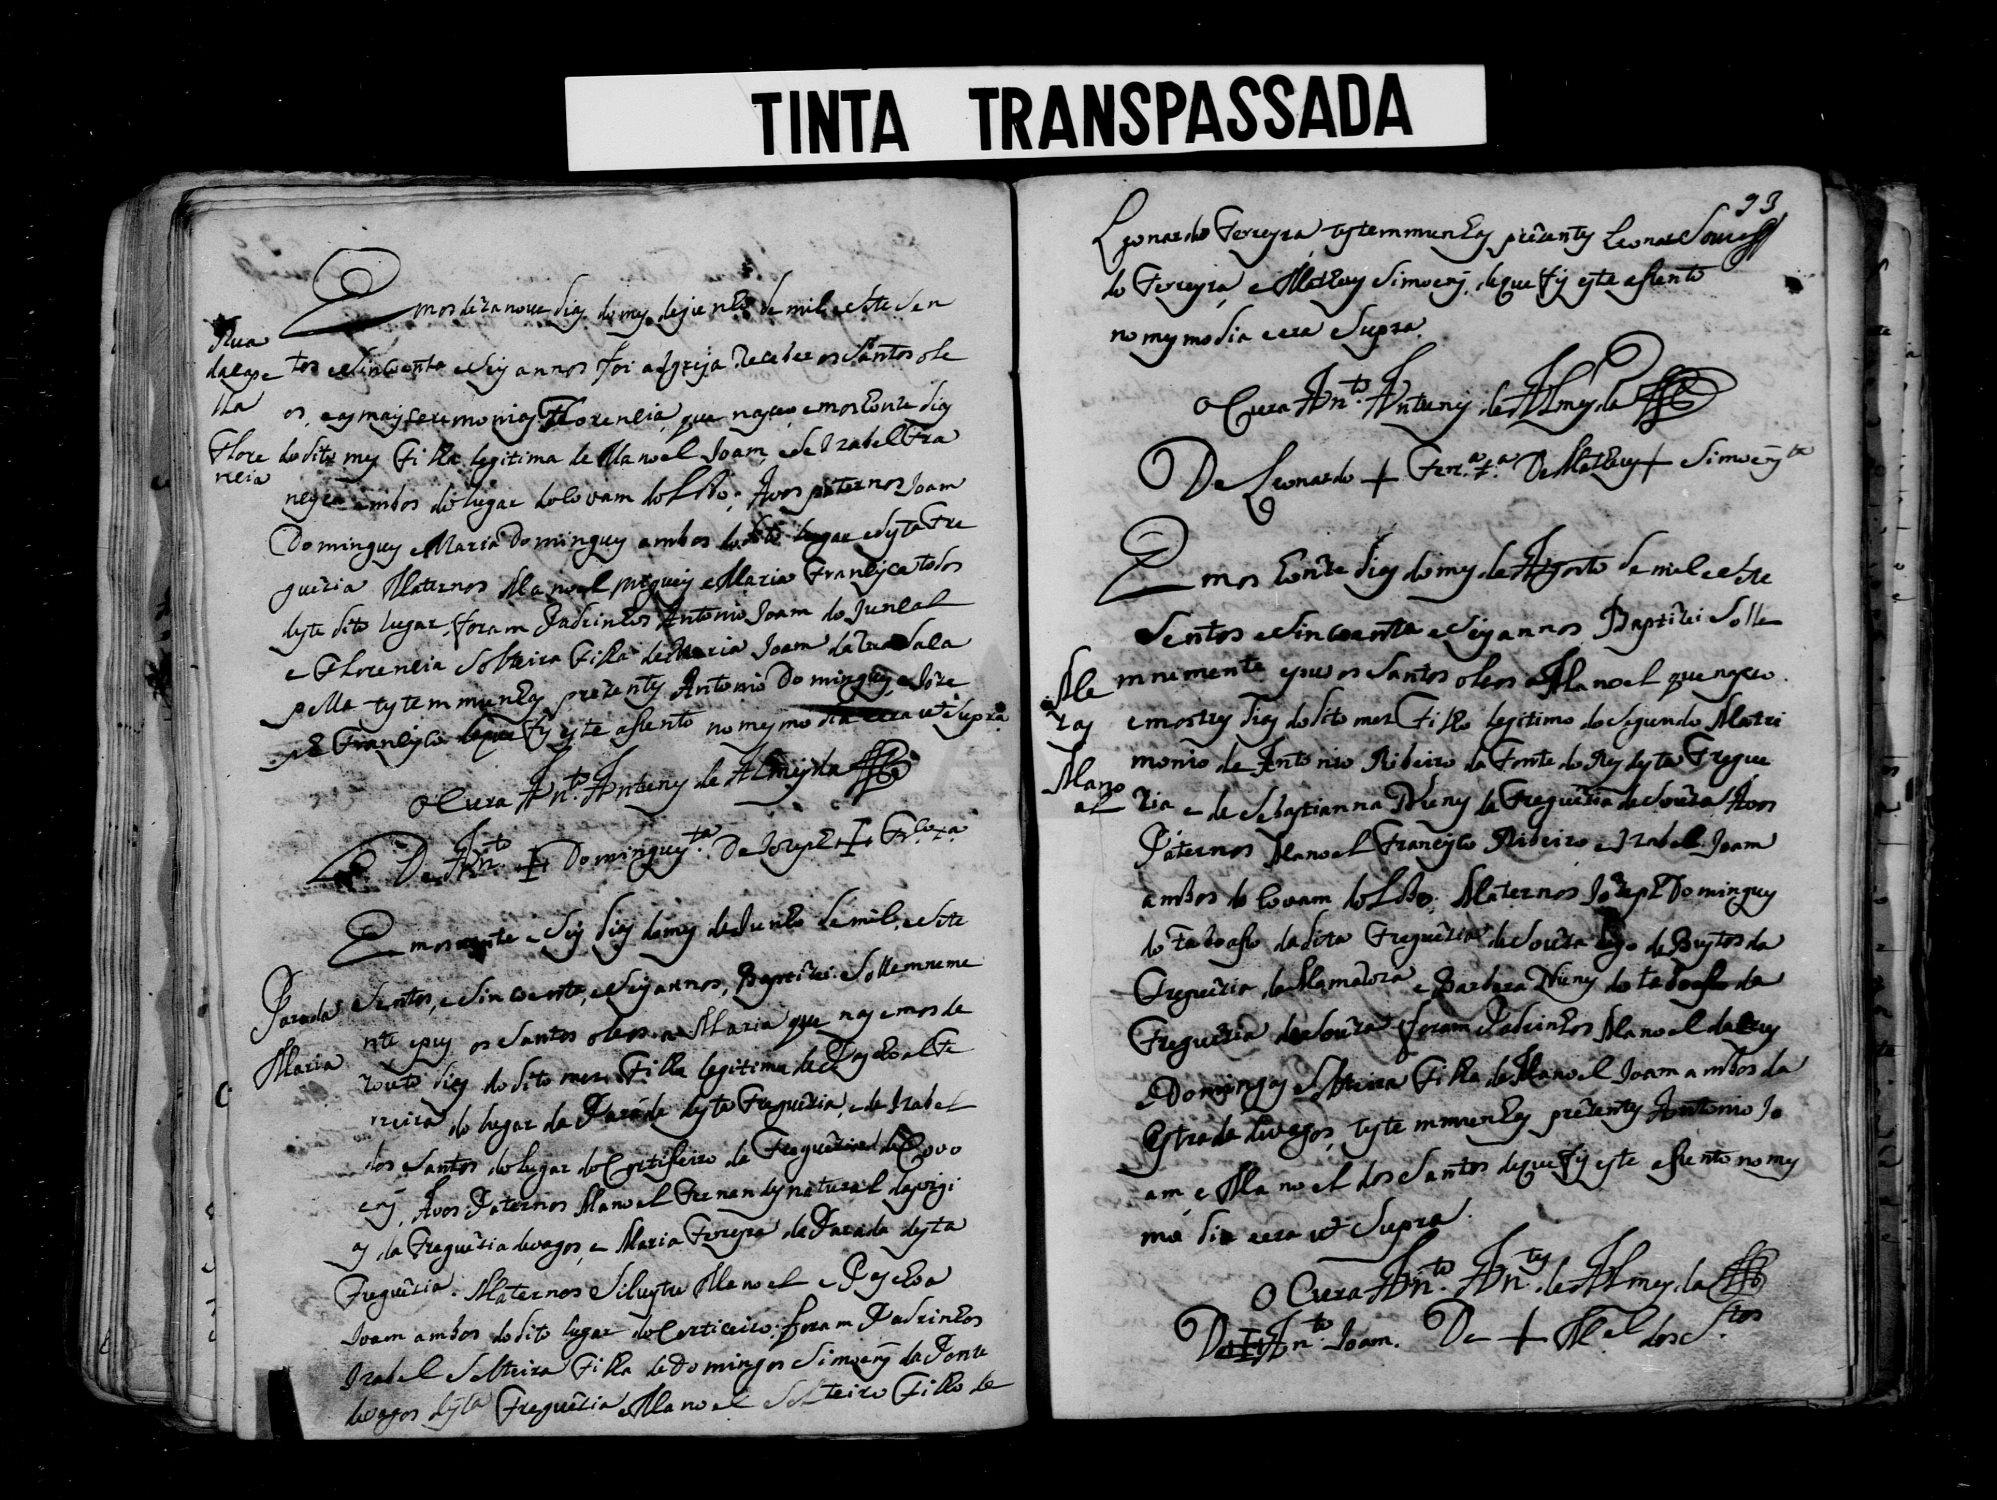 TINTA TRANSPASSADA
Emos dezanove dias do mes de junho de mil e sete sen
Rua
da cape
lla
Flore
ncia
tos e sincoenta e seis annos foi a Igreja receber os santos ole
os, e as mais seremonias Florencia, que nasceo emos honze dias
do dito mes Filha legitima de Manoel Joam, e de Izabel Fra
ambos do lugar do Covam do Lobo; Avos paternos Joam
Domingues e Maria Domingues ambos do dito lugar e desta Fre
guezia Maternos Manoel e Maria Francisca todos
deste dito lugar, foram Padrinhos Antonio Joam do Juncal
e Florencia Solteira Filha de Maria Joam da rua da Ca
pella testemmunhas prezentes Antonio Domingues, e Joze
ph Francisco de que fis este asento no mesmo dia era ut supra
O Cura Anto. Antunes de Almeyda
De Anto. + Domingues ta. De Joseph + Frco. ta.
Emos vinte e seis dias do mes de Junho de mil, e sete
Parada
Maria
sentos, e sincoenta, e seis annos, Baptizei Sollemneme
nte e pus os santos oleos a Maria que nas emos de
zouto dias do dito mes. Filha legitima de Pascoal Fe
rreira do lugar da Parada desta Freguezia, e de Izabel
dos Santos do lugar do Corticeiro da Freguezia de Covo
es, Avos Paternos Manoel Fernandes natural
as da Freguezia de vagos, e Maria Ferreyra da Parada desta
Freguezia. Maternos Silvestre Manoel e Pascoa
Joam ambos do dito lugar do Corticeiro. foram Padrinhos
Izabel Solteira Filha de Domingos Simoens da Ponte
de vagos desta Freguezia e Manoel Solteiro Filho de
93
Leonardo Ferreyra, testemmunhas prezentes Leonar
do Ferreyra, e Matheus Simoens, de que fis este asento
no mesmo dia e era supra.
O Cura Anto. Antunes de Almeyda
De Leonardo + Ferra. ta. De Matheus + Simoens ta
Emos honze dias do mes de Agosto de mil e sete
sentos e sincoenta e seis annos Baptizei Solle
Me
zas
Mano
el
mnemente e pus os santos oleos a Manoel que nasceo
emos tres dias do dito mes Filho legitimo do segundo Matri
monio de Antonio Ribeiro da Fonte do Rey desta Fregue
zia e de Sebastianna Nunes da Freguezia de Souza Avos
Paternos Manoel Francisco Ribeiro, e Izabel Joam
ambos do Covam do Lobo. Maternos Jozeph Domingues
do taboaso da dita Freguezia de Souza de Bustos da
Freguezia da Mamaroza e Barbara Nunes do taboaso da
Freguezia de Souza foram Padrinhos Manoel
e Domingas Solteira Filha de Manoel Joam ambos da
Estrada de vagos, testemmunhas prezentes Antonio Jo
am, e Manoel dos Santos de que fis este asento no mes
mo dia e era ut supra.
O Cura Anto. Antes. de Almeyda
De + Anto. Joam. De + Mel. dos Stos